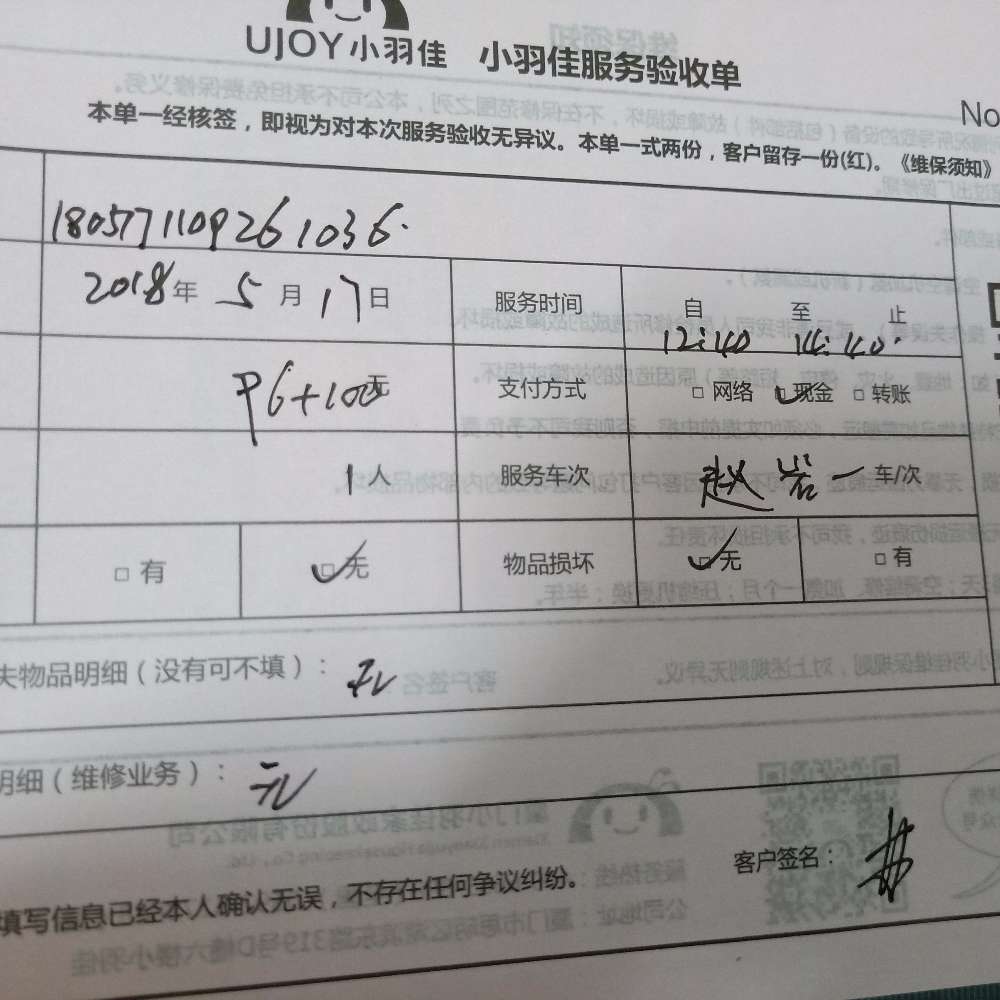 UJOY小羽佳 小羽佳服务验收单
No
本单一经核签，即视为对本次服务验收无异议。本单一式两份，客户留存一份(红)。《维保须知》
180577110926 1036.
2018年 5 月 17 日 服务时间 自 12:40 至 14:40 止
96+100元 支付方式 □ 网络 ☑ 现金 □ 转账
1 人 服务车次 赵岩 一 车/次
□ 有 ☑ 无 物品损坏 ☑ 无 □ 有
失物品明细（没有可不填）： 无
明细（维修业务）： 无
填写信息已经本人确认无误，不存在任何争议纠纷。 客户签名：